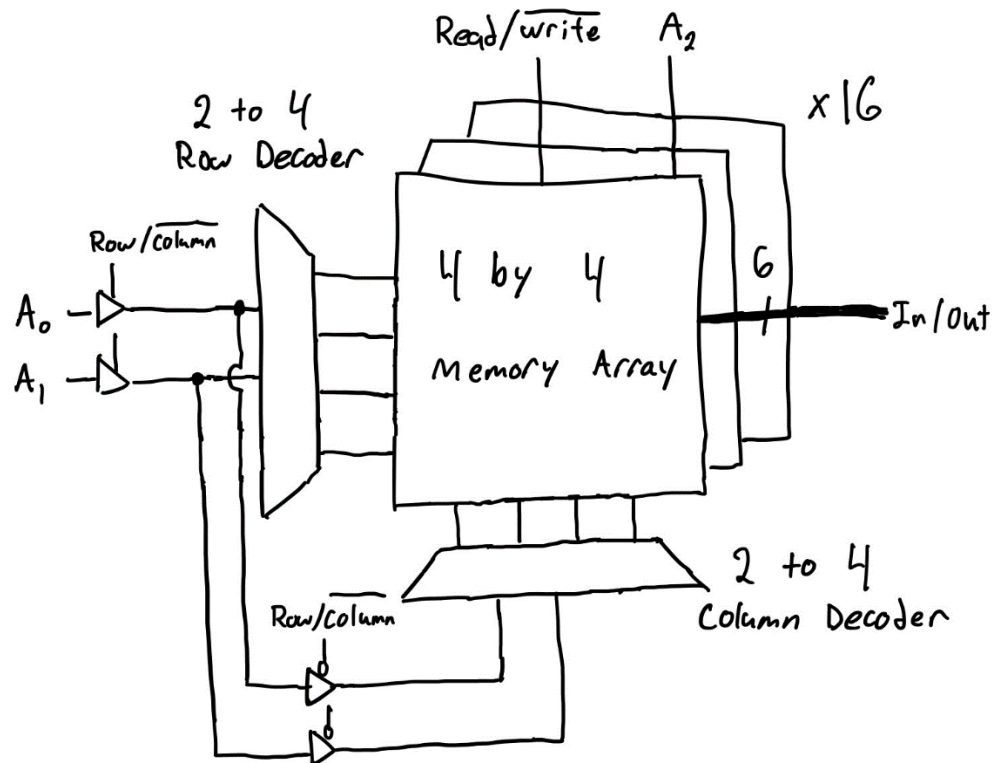 Read/write
A₂
x16
2 to 4
Row Decoder
Row/column
A₀
A₁
4 by 4
Memory Array
6
In/Out
2 to 4
Column Decoder
Row/column